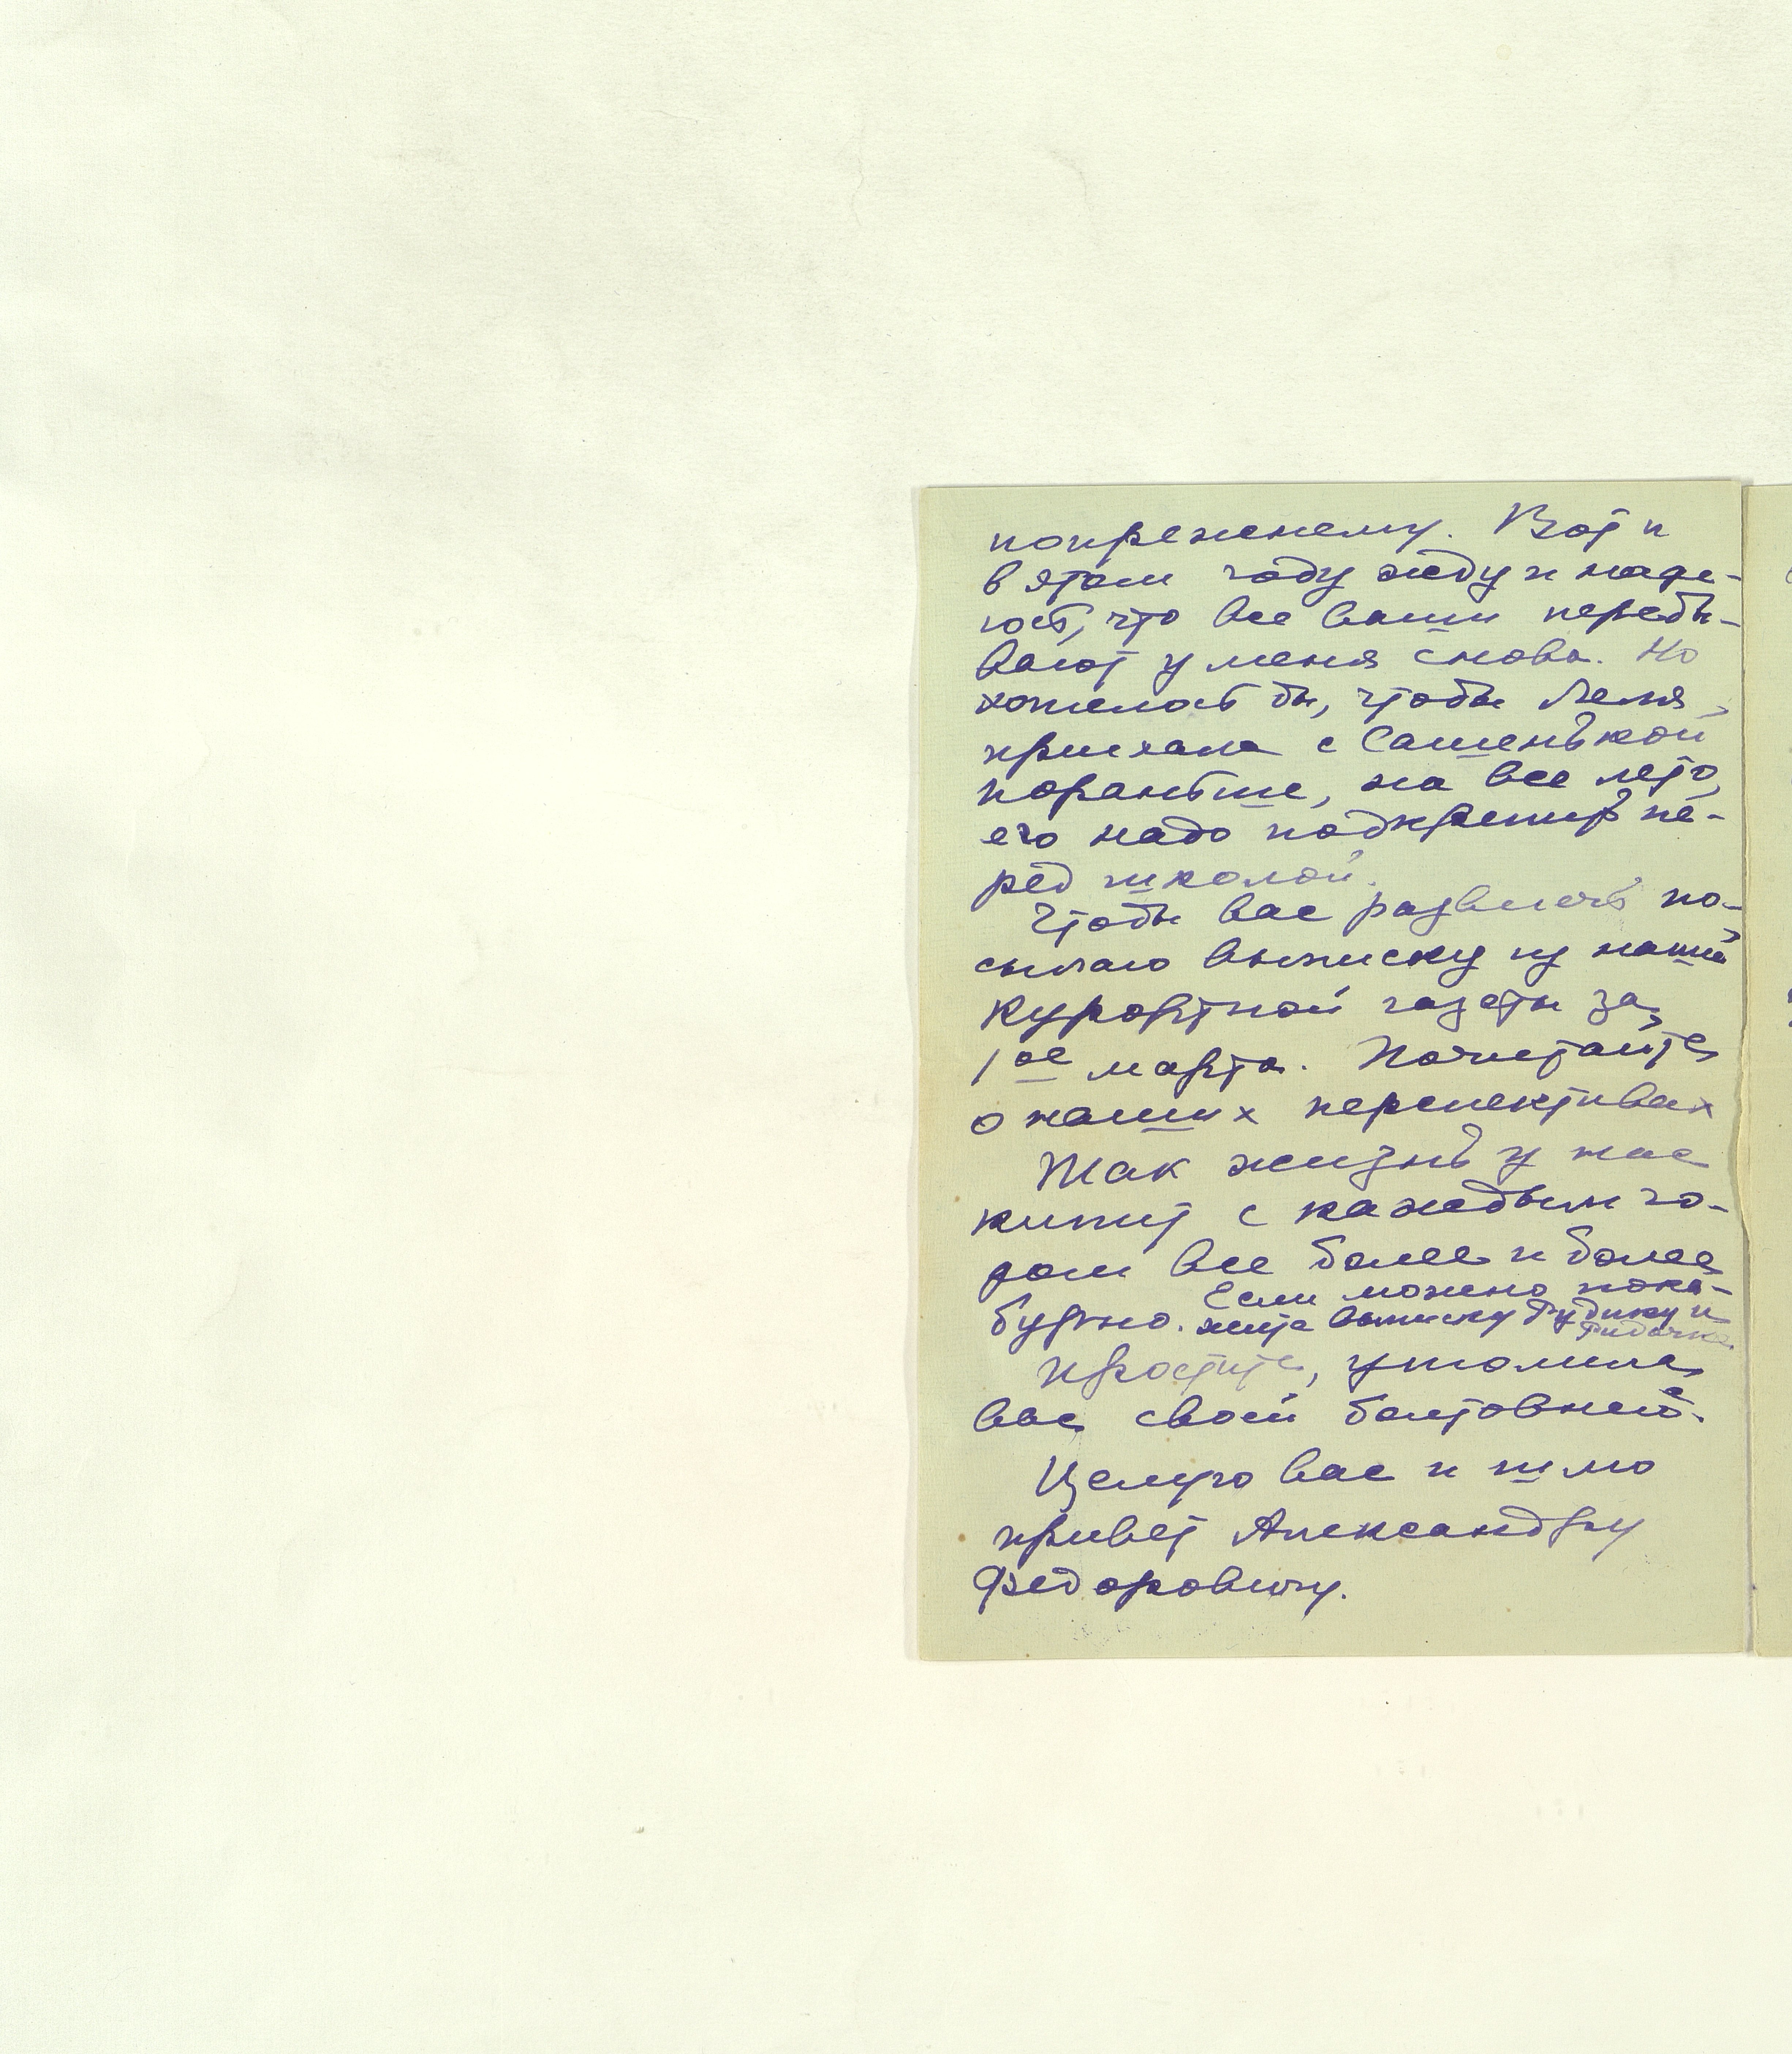 попрежнему. Вот и
в этом году жду и наде-
юсь, что все ваши перебы-
вают у меня снова. Но
хотелось бы, чтобы Леля
приехала с Сашенькой
пораньше, на все лето,
его надо подкрепить пе-
ред школой.
Чтобы вас развлечь по-
сылаю выписку из нашей
курортной газеты за
1ое марта. Почитайте
о наших перспективах
Так жизнь у нас
кипит с каждым го-
дом все более и более
бурно. Если можно пока-
жите выписку Рудику и
Простите, утомила
вас своей болтовней.
Целую вас и шлю
привет Александру
Федоровичу.